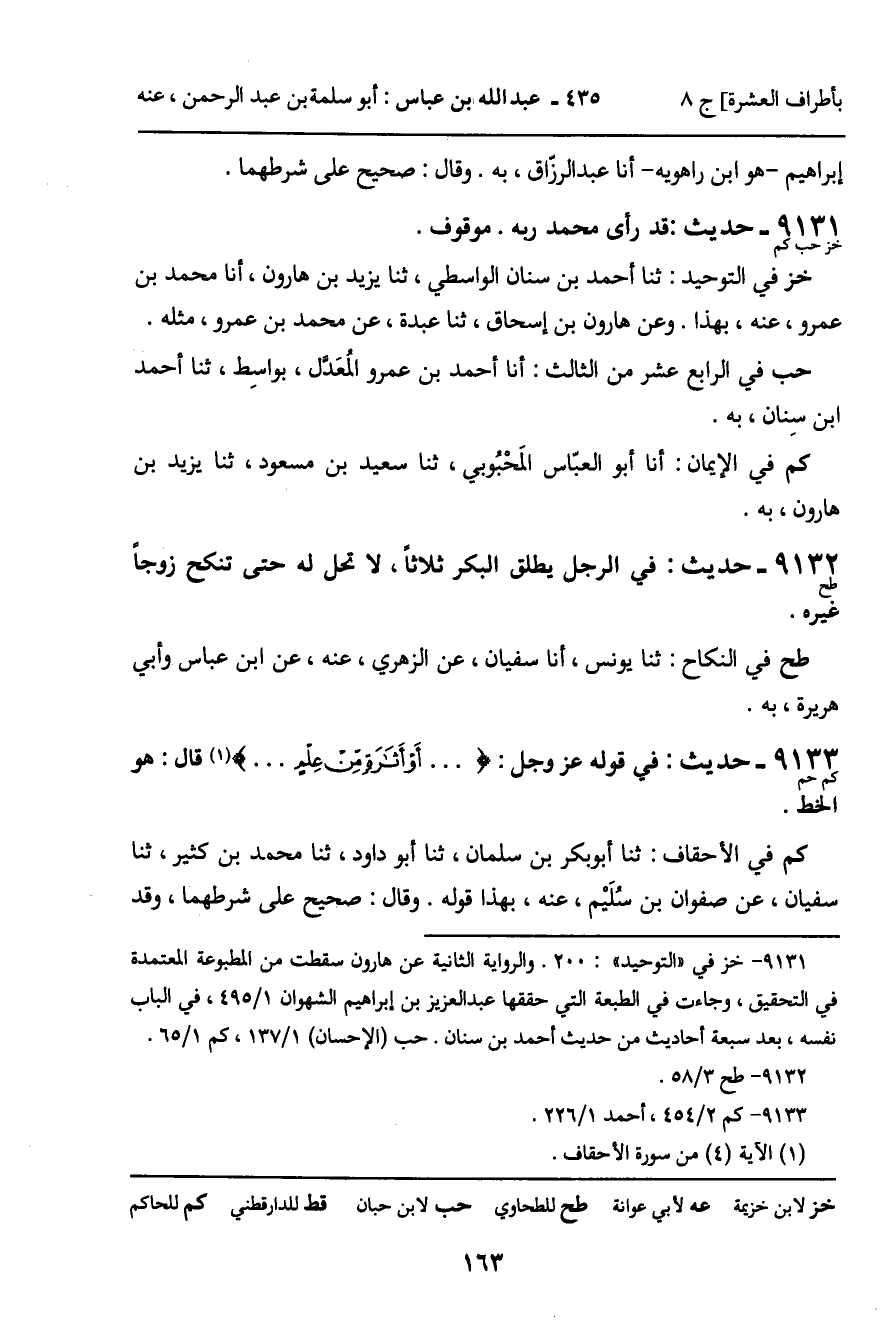 بأطراف العشرة] ج ٨ ٤٣٥ ـ عبد الله بن عباس : أبو سلمة بن عبد الرحمن ، عنه
إبراهيم -هو ابن راهويه- أنا عبدالرزّاق ، به . وقال : صحيح على شرطهما .
٩١٣١ ـ حديث :قد رأى محمد ربه . موقوف .
خز حب كم
خز في التوحيد : ثنا أحمد بن سنان الواسطي ، ثنا يزيد بن هارون ، أنا محمد بن
عمرو ، عنه ، بهذا . وعن هارون بن إسحاق ، ثنا عبدة ، عن محمد بن عمرو ، مثله .
حب في الرابع عشر من الثالث : أنا أحمد بن عمرو المُعَدَّل ، بواسِط ، ثنا أحمد
ابن سِنان ، به .
كم في الإيمان : أنا أبو العبّاس المَحْبُوبي ، ثنا سعيد بن مسعود ، ثنا يزيد بن
هارون ، به .
٩١٣٢ ـ حديث : في الرجل يطلق البكر ثلاثاً ، لا تحل له حتى تنكح زوجاً
طح
غيره .
طح في النكاح : ثنا يونس ، أنا سفيان ، عن الزهري ، عنه ، عن ابن عباس وأبي
هريرة ، به .
٩١٣٣ ـ حديث : في قوله عز وجل : ﴿ ... أَوْ أَثَٰرَةٍ مِّنْ عِلْمٍ ... ﴾(١) قال : هو
كم حم
الخط .
كم في الأحقاف : ثنا أبوبكر بن سلمان ، ثنا أبو داود ، ثنا محمد بن كثير ، ثنا
سفيان ، عن صفوان بن سُلَيْم ، عنه ، بهذا قوله . وقال : صحيح على شرطهما ، وقد
٩١٣١- خز في «التوحيد» : ٢٠٠ . والرواية الثانية عن هارون سقطت من المطبوعة المعتمدة
في التحقيق ، وجاءت في الطبعة التي حققها عبدالعزيز بن إبراهيم الشهوان ٤٩٥/١ ، في الباب
نفسه ، بعد سبعة أحاديث من حديث أحمد بن سنان . حب (الإحسان) ١٣٧/١ ، كم ٦٥/١ .
٩١٣٢- طح ٥٨/٣ .
٩١٣٣- كم ٤٥٤/٢ ، أحمد ٢٢٦/١ .
(١) الآية (٤) من سورة الأحقاف .
خز لابن خزيمة عه لأبي عوانة طح للطحاوي حب لابن حبان قط للدارقطني كم للحاكم
١٦٣